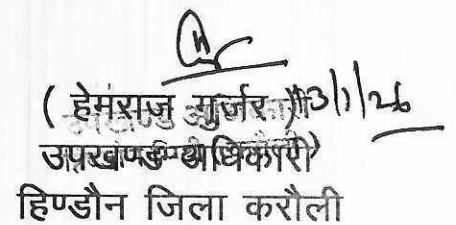 ( हेमराज गुर्जर ) 13/1/26
उपखण्ड अधिकारी
हिण्डौन जिला करौली